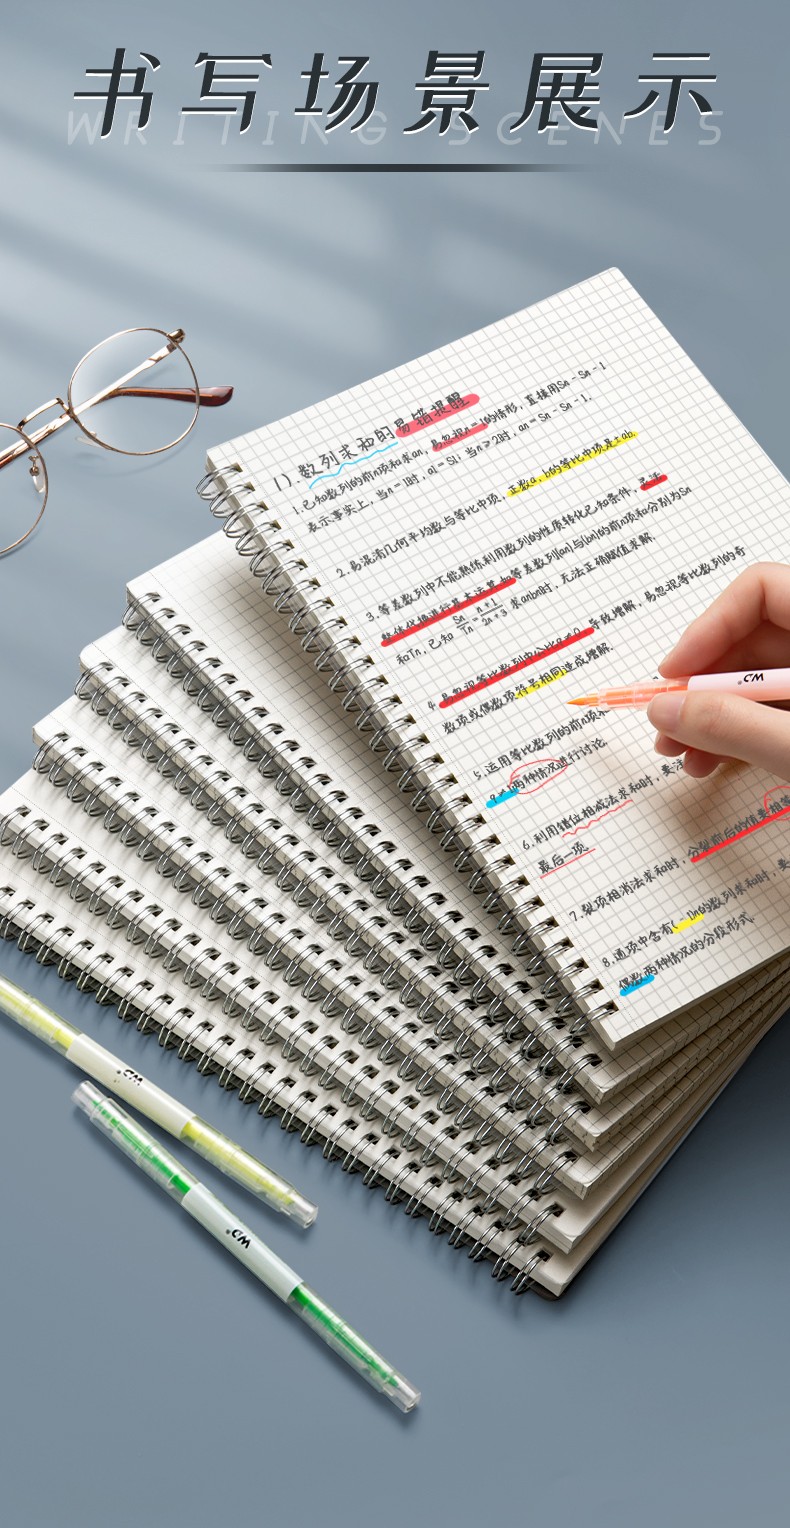 书写场景展示
WRITING SCENES
1).数列求和的易错提醒
1.已知数列的前n项和求an,易忽视n=1的情形,直接用Sn-Sn-1
表示事实上,当n=1时,a1=S1;当n≥2时,an=Sn-Sn-1.
2.易混淆几何平均数与等比中项,正数a,b的等比中项是±ab.
3.等差数列中不能熟练利用数列的性质转化已知条件,灵活
整体代换进行基本运算如等差数列{an}与{bn}的前n项和分别为Sn
和Tn,已知Sn/Tn=n+1/2n+3求anbn时,无法正确赋值求解.
4.易忽视等比数列中公比q≠0导致增解,易忽视等比数列的奇
数项或偶数项符号相同造成增解.
5.运用等比数列的前n项
q≠1两种情况进行讨论.
6.利用错位相减法求和时,要注
最后一项.
7.裂项相消法求和时,分裂前后的值要相等
8.通项中含有(-1)n的数列求和时,要
偶数两种情况的分段形式.
M&G
M&G
M&G